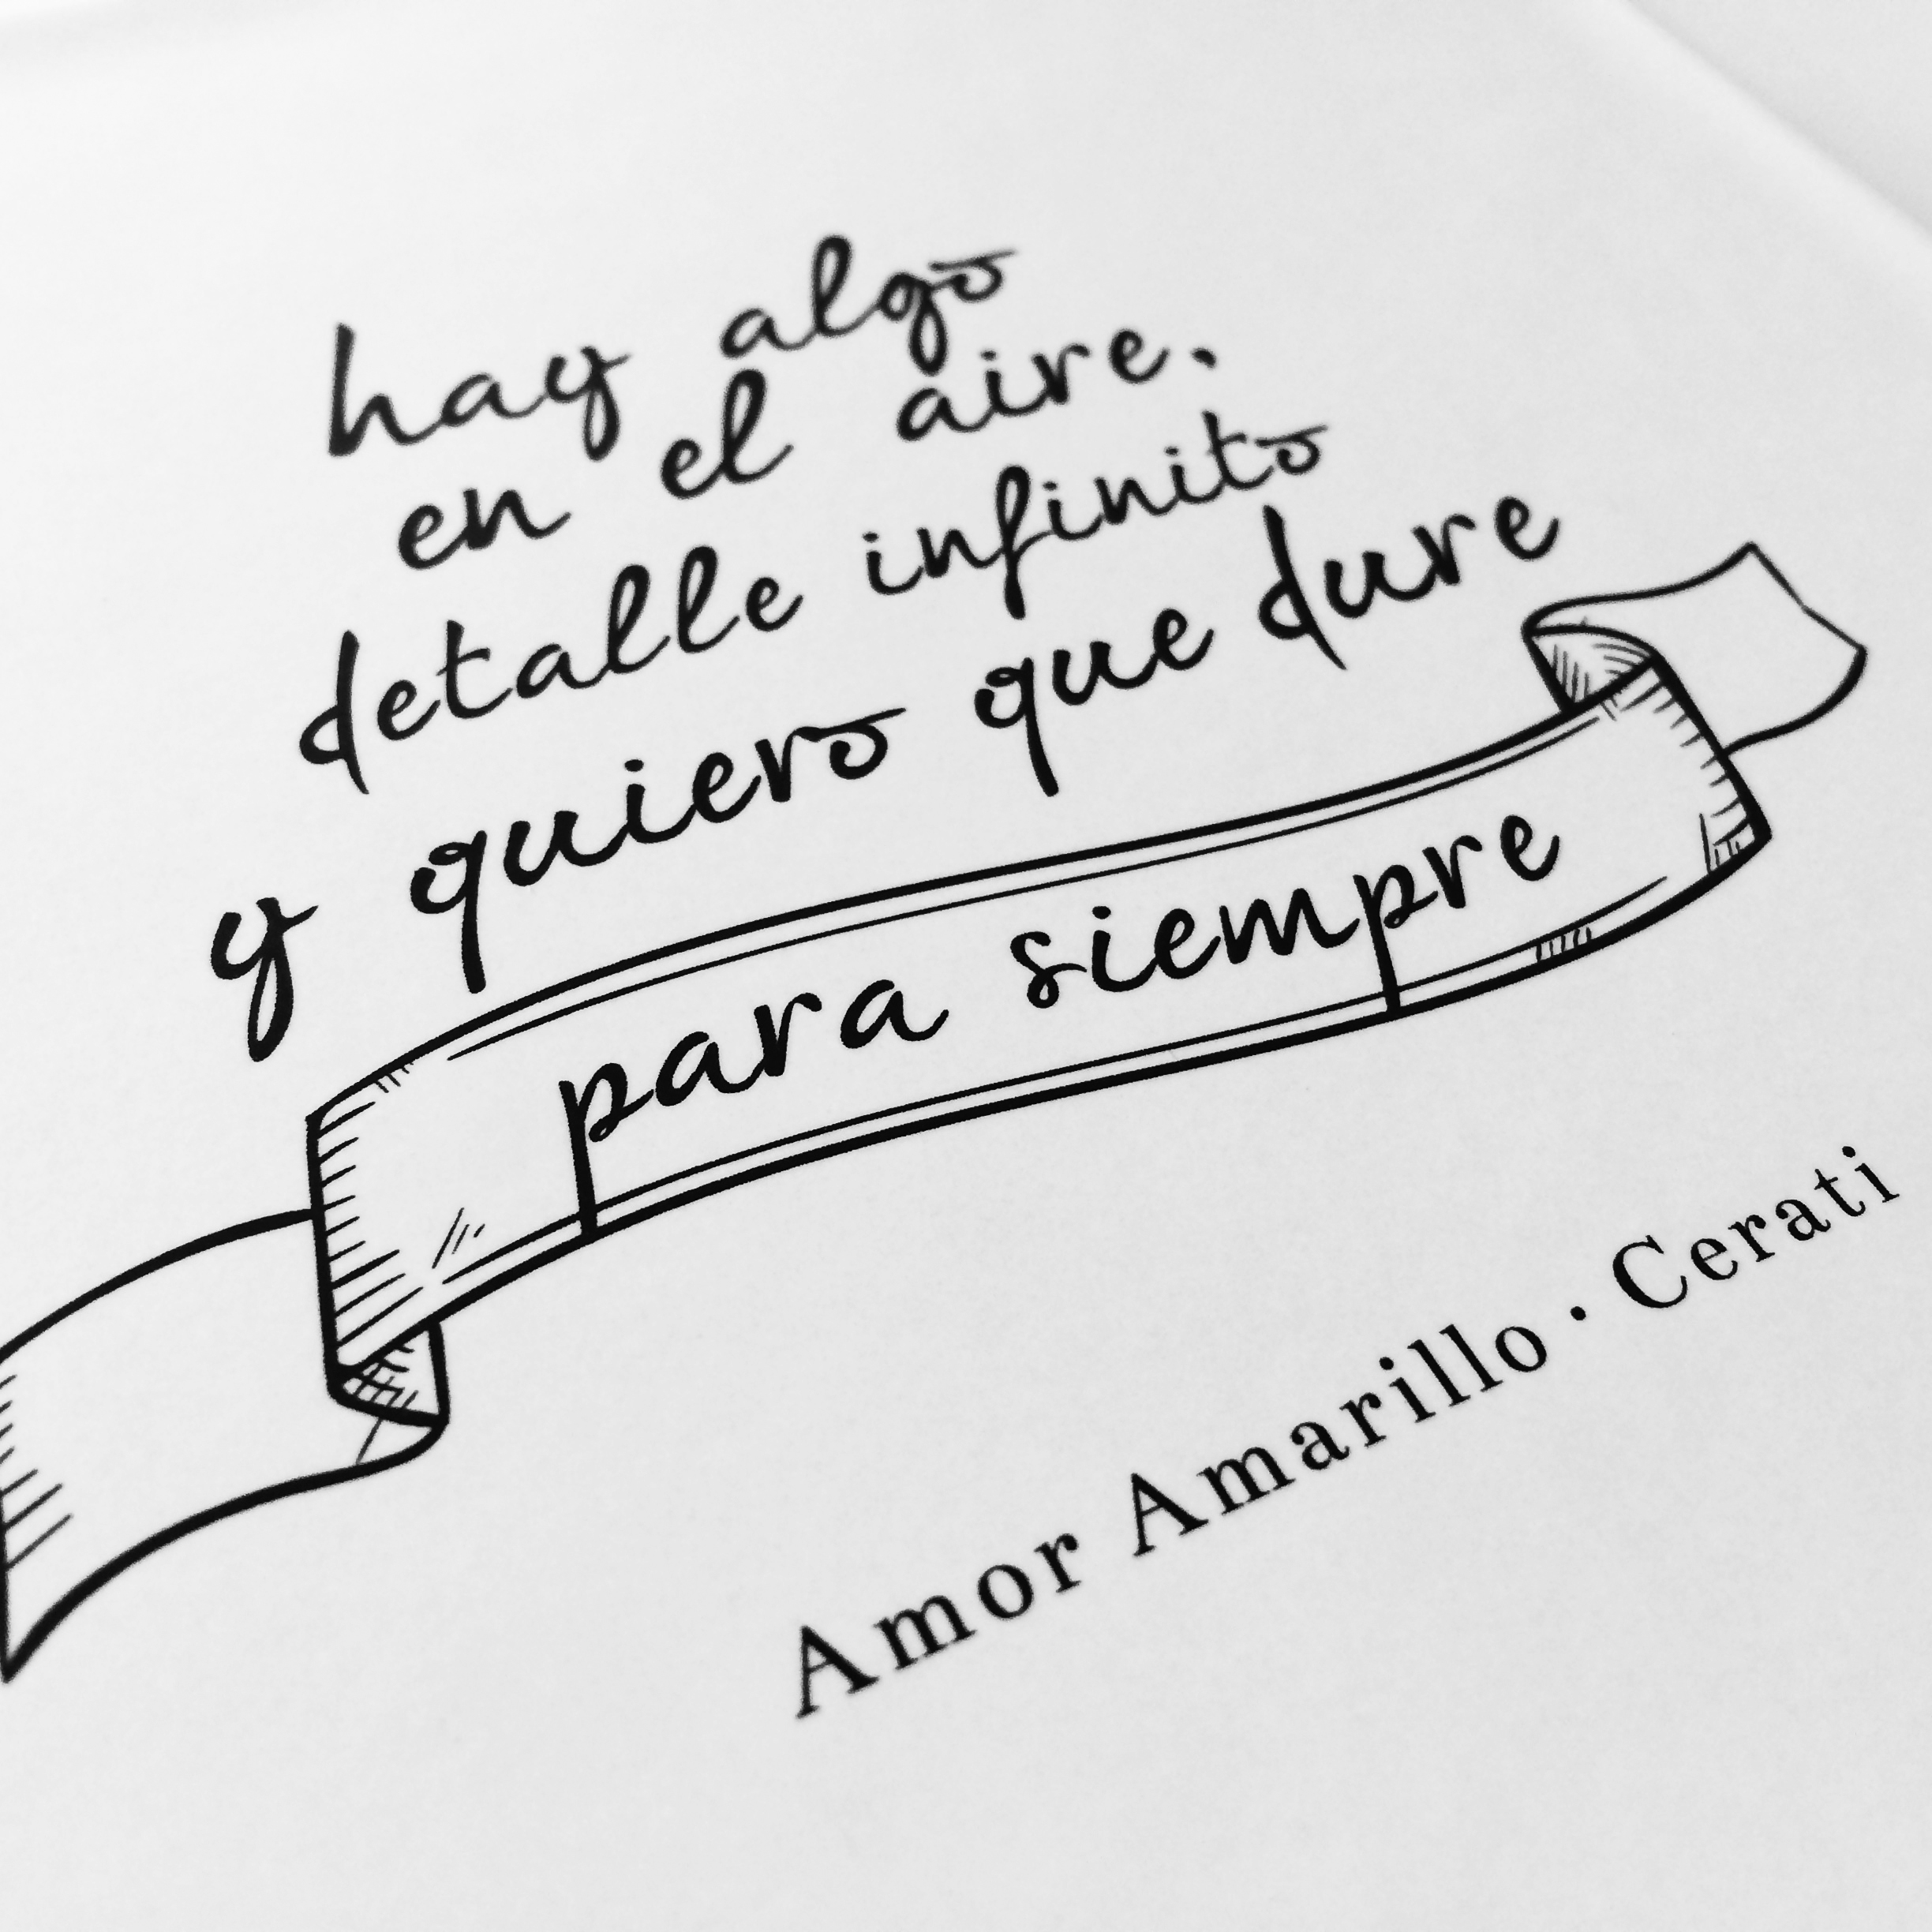 hay algo
en el aire.
detalle infinito
y quiero que dure
para siempre
Amor Amarillo · Cerati